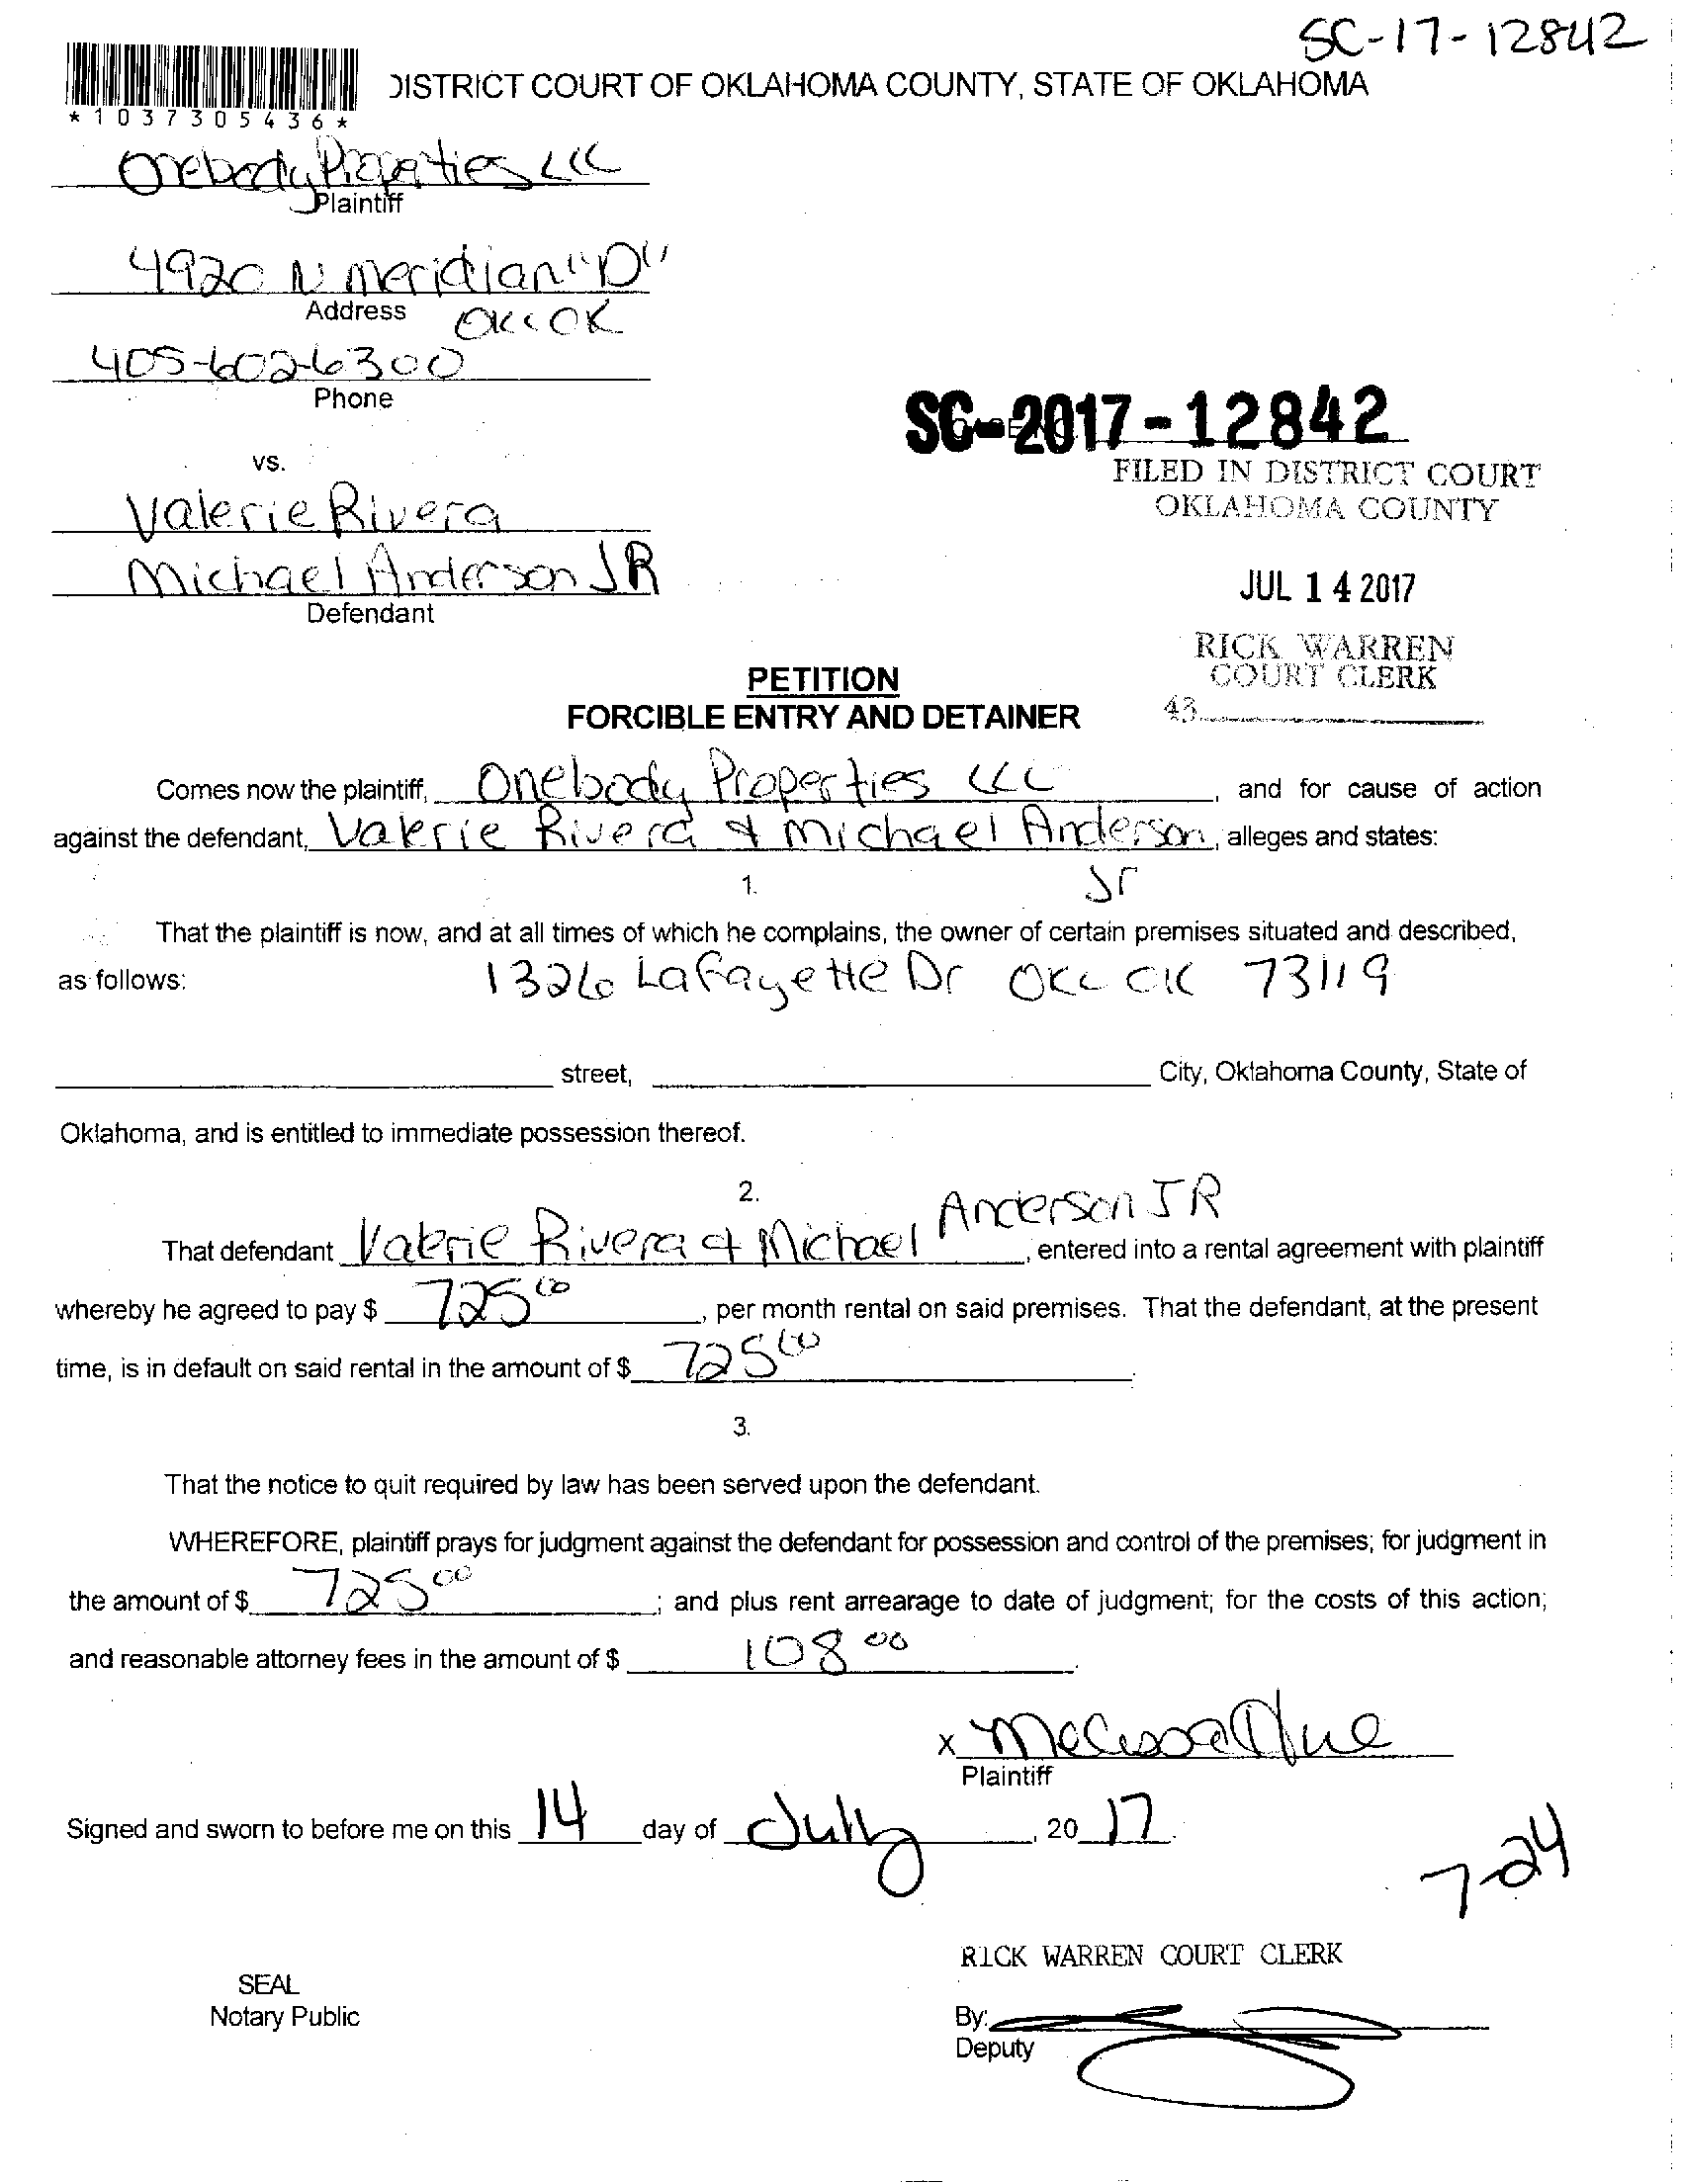 SC-17-12842
DISTRICT COURT OF OKLAHOMA COUNTY, STATE OF OKLAHOMA
*1037305436*
Onebody Properties LLC
Plaintiff
4920 N Meridian "D"
Address OKC OK
405-602-6300
Phone
SC-2017-12842
vs.
FILED IN DISTRICT COURT
OKLAHOMA COUNTY
Valerie Rivera
Michael Anderson JR
Defendant
JUL 14 2017
RICK WARREN
COURT CLERK
43
PETITION
FORCIBLE ENTRY AND DETAINER
Comes now the plaintiff, Onebody Properties LLC, and for cause of action
against the defendant, Valerie Rivera & Michael Anderson, alleges and states:
1. Jr
That the plaintiff is now, and at all times of which he complains, the owner of certain premises situated and described,
as follows: 1326 Lafayette Dr OKC OK 73119
street, City, Oklahoma County, State of
Oklahoma, and is entitled to immediate possession thereof.
2.
That defendant Valerie Rivera & Michael Anderson JR, entered into a rental agreement with plaintiff
whereby he agreed to pay $ 725 00, per month rental on said premises. That the defendant, at the present
time, is in default on said rental in the amount of $ 725 00.
3.
That the notice to quit required by law has been served upon the defendant.
WHEREFORE, plaintiff prays for judgment against the defendant for possession and control of the premises; for judgment in
the amount of $ 725 00; and plus rent arrearage to date of judgment; for the costs of this action;
and reasonable attorney fees in the amount of $ 108 00.
x Melissa
Plaintiff
Signed and sworn to before me on this 14 day of July, 20 17.
7-24
RICK WARREN COURT CLERK
SEAL
Notary Public
By:
Deputy